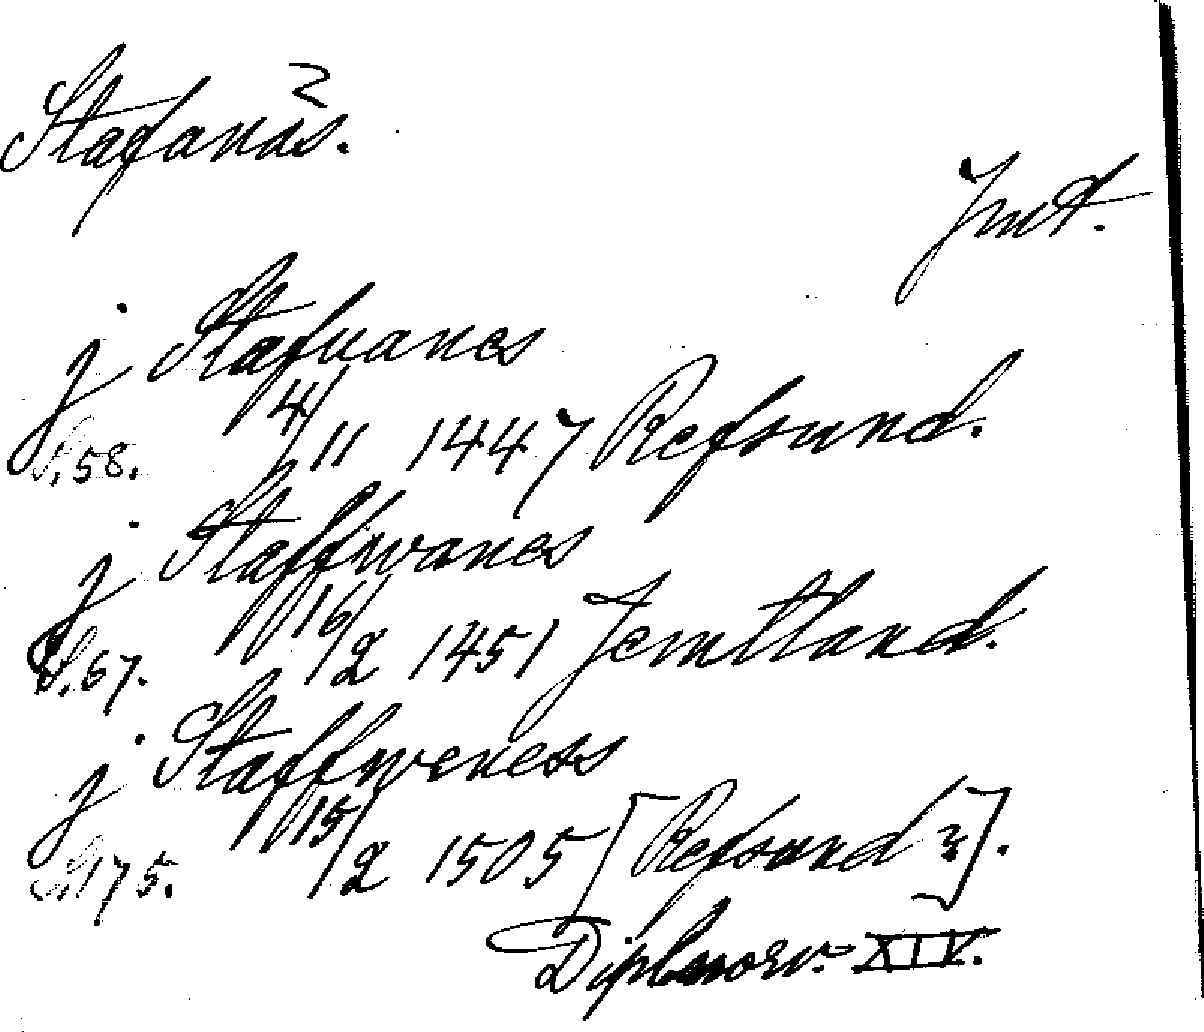 Stafanäs.
Jmt.
j Stafuanes
S. 58. 4/11 1447 Refsund.
j Staffwanes
S. 67. 16/2 1451 Jemtland.
j Staffweness
S. 175. 15/2 1505 [Refsund?].
Dipl. norv. XIV.